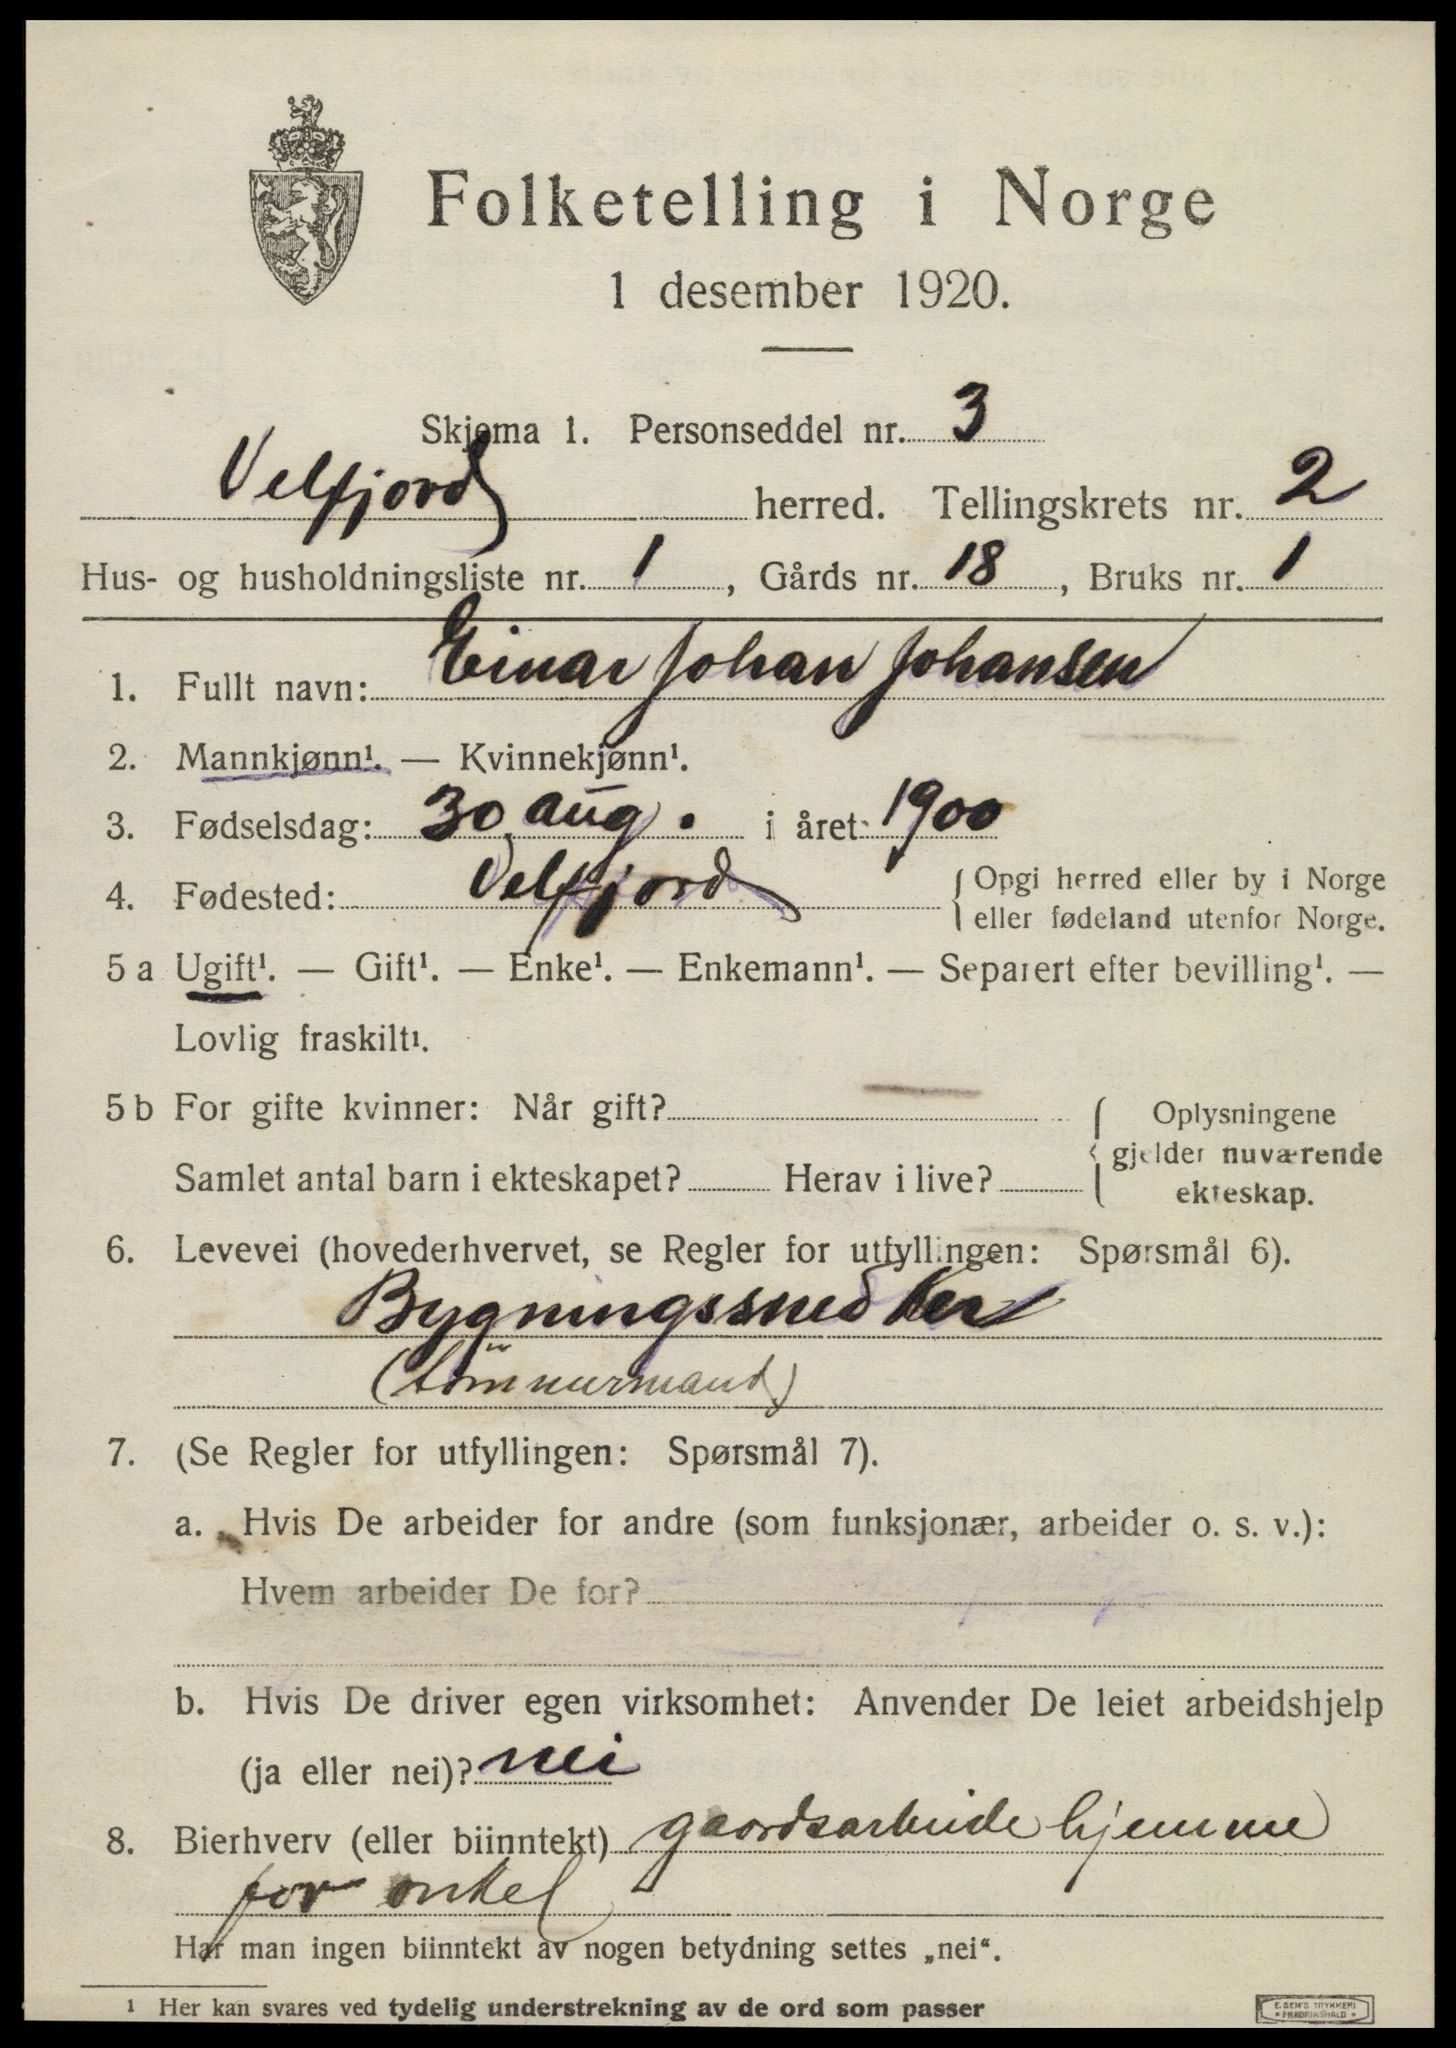 Folketelling i Norge
1 desember 1920.
Skjema 1. Personseddel nr. 3
Velfjord herred. Tellingskrets nr. 2
Hus- og husholdningsliste nr. 1, Gårds nr. 18, Bruks nr. 1
1. Fullt navn: Einar Johan Johansen
2. Mannkjønn¹. — Kvinnekjønn¹.
3. Fødselsdag: 30 aug. i året 1900
4. Fødested: Velfjord { Opgi herred eller by i Norge
eller fødeland utenfor Norge.
5 a Ugift¹. — Gift¹. — Enke¹. — Enkemann¹. — Separert efter bevilling¹. —
Lovlig fraskilt¹.
5 b For gifte kvinner: Når gift?
Samlet antal barn i ekteskapet? Herav i live?
{ Oplysningene
gjelder nuværende
ekteskap.
6. Levevei (hovederhvervet, se Regler for utfyllingen: Spørsmål 6).
Bygningssnedker
(tömmermand)
7. (Se Regler for utfyllingen: Spørsmål 7).
a. Hvis De arbeider for andre (som funksjonær, arbeider o. s. v.):
Hvem arbeider De for?
b. Hvis De driver egen virksomhet: Anvender De leiet arbeidshjelp
(ja eller nei)? nei
8. Bierhverv (eller biinntekt) gaardsarbeide hjemme
for onkel
Har man ingen biinntekt av nogen betydning settes „nei“.
¹ Her kan svares ved tydelig understrekning av de ord som passer
E. SEM'S TRYKKERI
FREDRIKSHALD